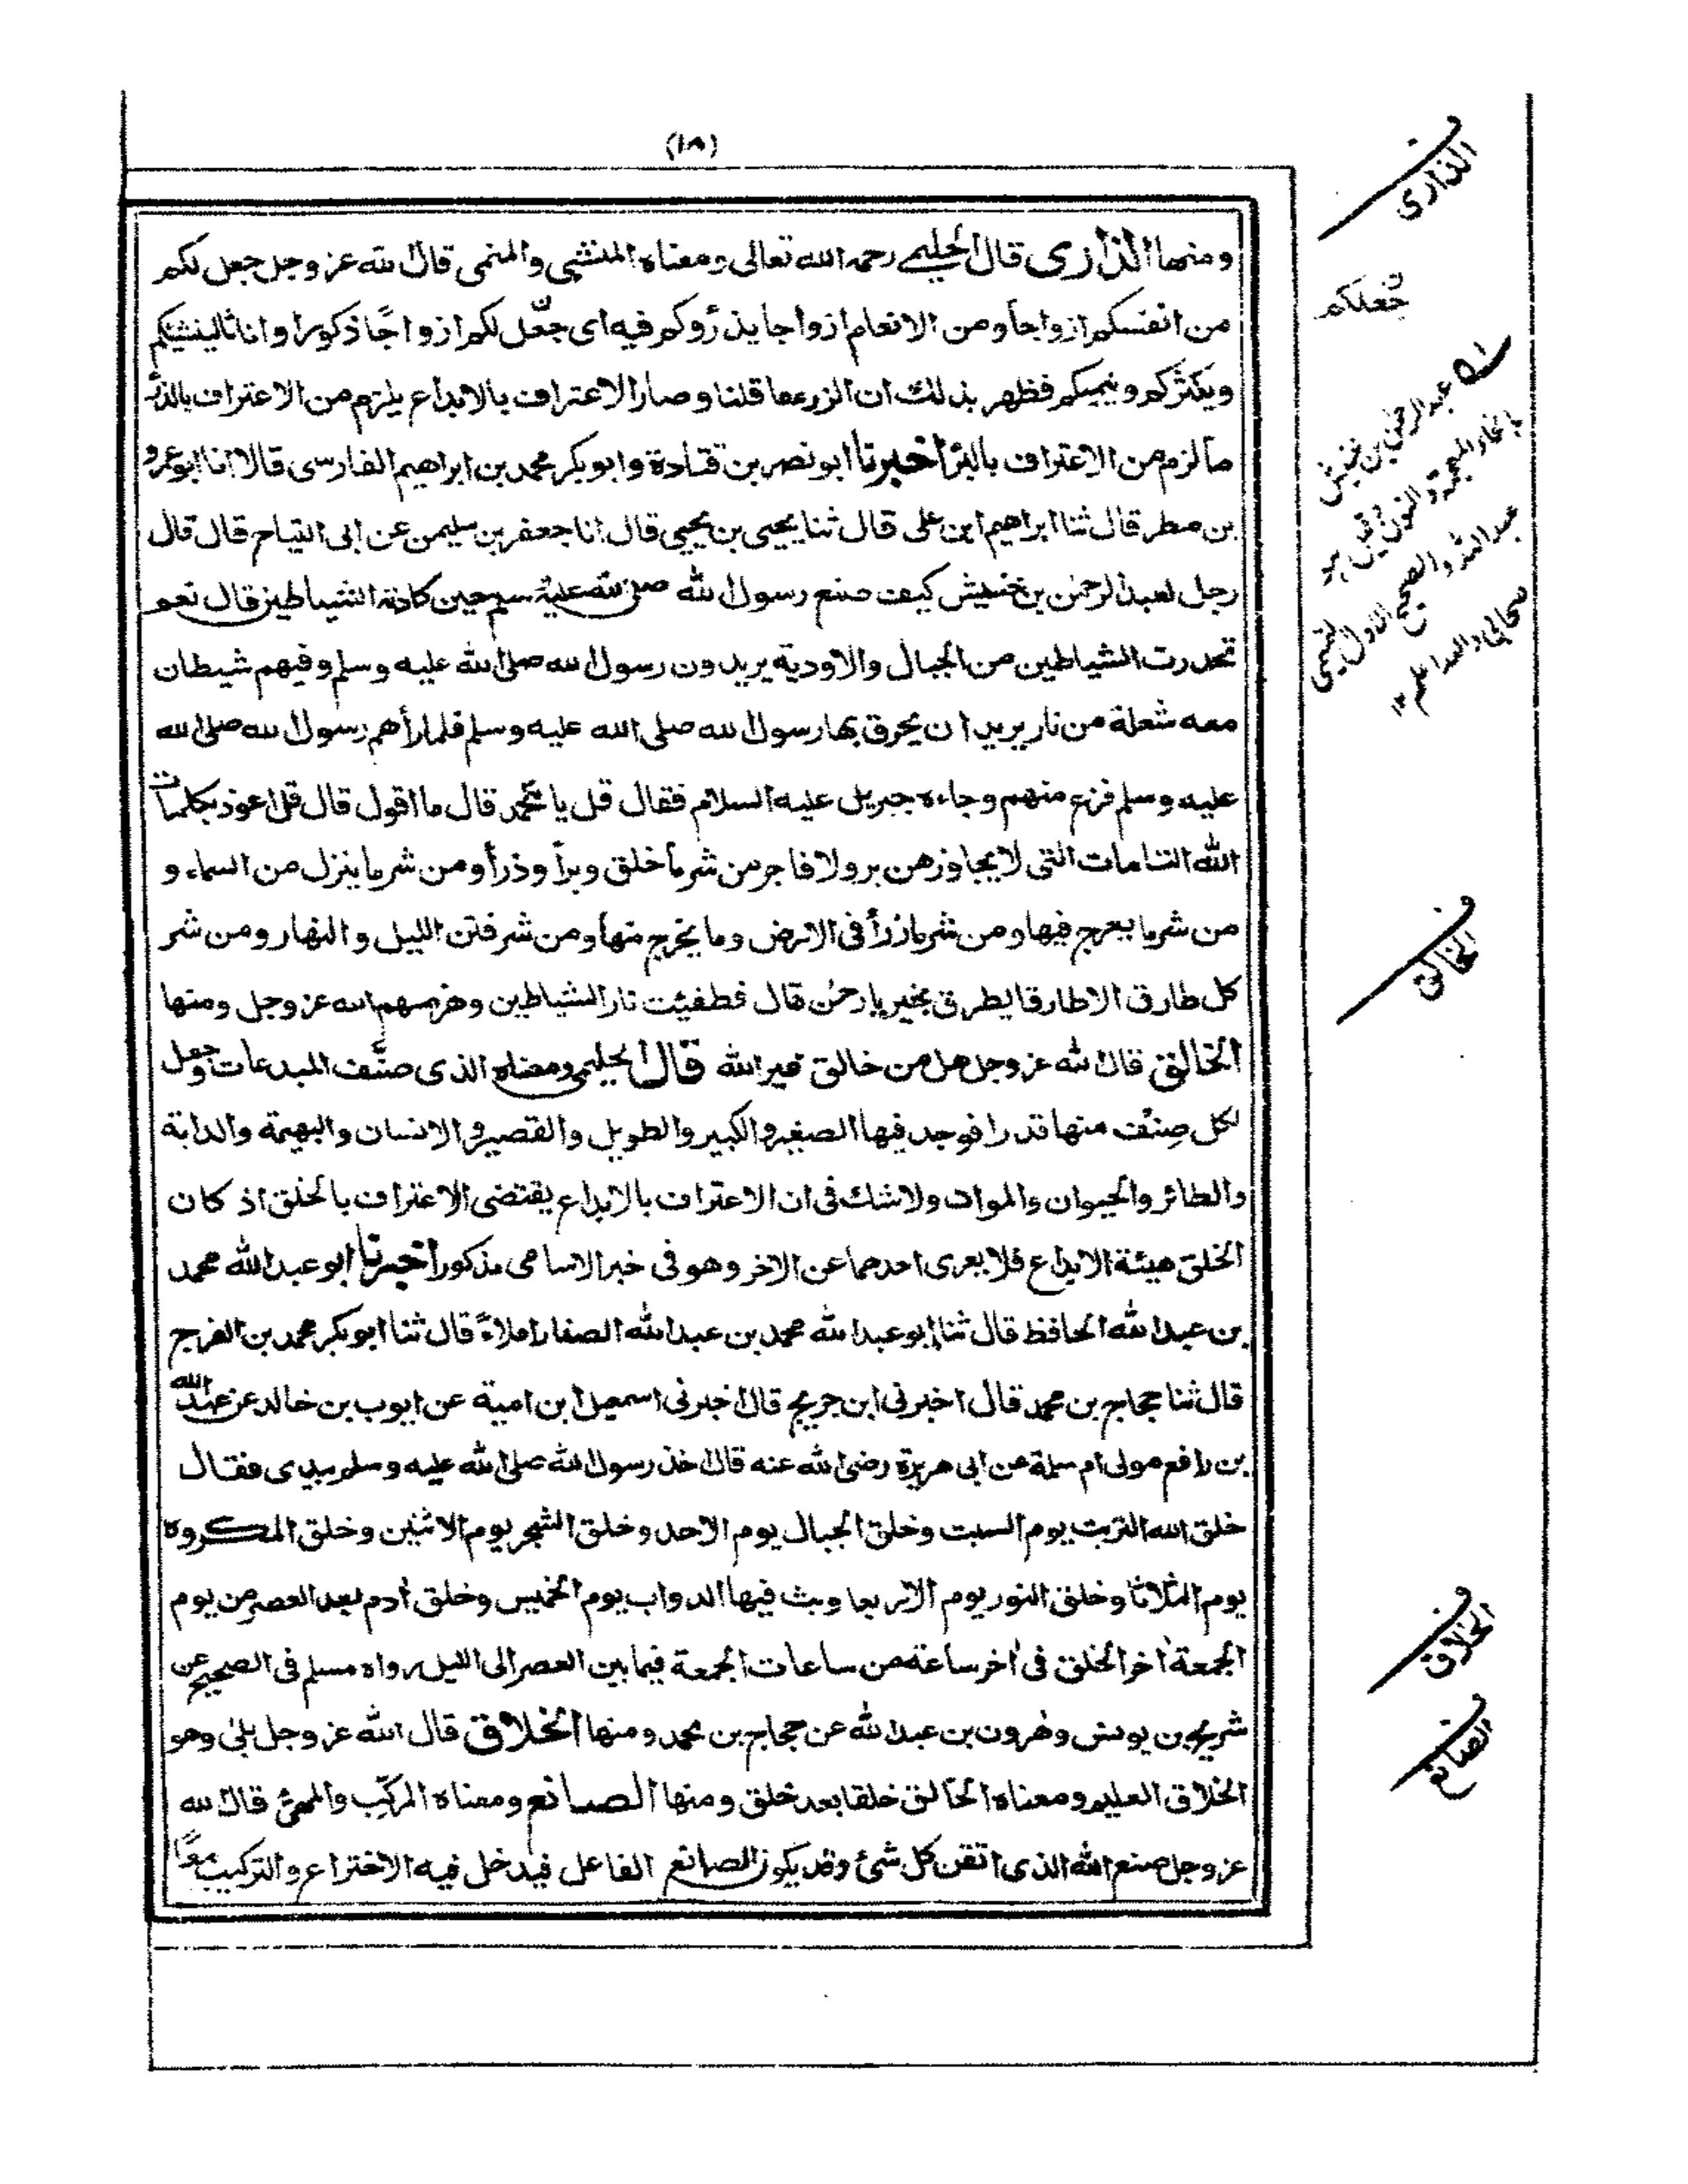 (١٨)
ومنها الذارى قال الحليمى رحمه الله تعالى ومعناه المنشئ والمنمى قال الله عز وجل جعل لكم
من انفسكم ازواجا ومن الانعام ازواجا يذرؤكم فيه اى جعل لكم ازواجًا ذكورا واناثا لينشئكم
ويكثركم وينميكم فظهر بذلك ان الزرء ما قلنا وصار الاعتراف بالابداع يلزم من الاعتراف بالذرء
ما لزم من الاعتراف بالبرأ اخبرنا ابو نصر بن قتادة وابو بكر محمد بن ابراهيم الفارسى قالا انا ابو عمرو
بن مطر قال ثنا ابراهيم ابن على قال ثنا يحيى بن يحيى قال انا جعفر بن سليمن عن ابى التياح قال قال
رجل لعبد الرحمن بن خنبش كيف صنع رسول الله صلى الله عليه وسلم حين كادته الشياطين قال نعم
تحدرت الشياطين من الجبال والاودية يريدون رسول الله صلى الله عليه وسلم وفيهم شيطان
معه شعلة من نار يريد ان يحرق بها رسول الله صلى الله عليه وسلم فلما رأهم رسول الله صلى الله
عليه وسلم فزع منهم وجاءه جبريل عليه السلام فقال قل يا محمد قال ما اقول قال قل اعوذ بكلمات
الله التامات التى لا يجاوزهن بر ولا فاجر من شر ما خلق وبرأ وذرأ ومن شر ما ينزل من السماء و
من شر ما يعرج فيها ومن شر ما زرأ فى الارض وما يخرج منها ومن شر فتن الليل والنهار ومن شر
كل طارق الا طارقا يطرق بخير يا رحمن قال فطفيت نار الشياطين وهزمهم الله عز وجل ومنها
الخالق قال الله عز وجل هل من خالق غير الله قال الحليمى ومعناه الذى صنف المبدعات وجعل
لكل صنف منها قدرا فوجد فيها الصغير والكبير والطويل والقصير والانسان والبهيمة والدابة
والطائر والحيوان والموات ولا شك فى ان الاعتراف بالابداع يقتضى الاعتراف بالخلق اذ كان
الخلق هيئة الابداع فلا يعرى احدهما عن الاخر وهو فى خبر الاسامى مذكور اخبرنا ابو عبد الله محمد
بن عبد الله الحافظ قال ثنا ابو عبد الله محمد بن عبد الله الصفار املاءً قال ثنا ابو بكر محمد بن الفرج
قال ثنا حجاج بن محمد قال اخبرنى ابن جريج قال اخبرنى اسمعيل ابن امية عن ايوب بن خالد عن عبد الله
بن رافع مولى ام سلمة عن ابى هريرة رضى الله عنه قال اخذ رسول الله صلى الله عليه وسلم بيدى فقال
خلق الله التربت يوم السبت وخلق الجبال يوم الاحد وخلق الشجر يوم الاثنين وخلق المكروه
يوم الثلاثا وخلق النور يوم الاربعا وبث فيها الدواب يوم الخميس وخلق أدم بعد العصر من يوم
الجمعة أخر الخلق فى أخر ساعة من ساعات الجمعة فيما بين العصر الى الليل رواه مسلم فى الصحيح عن
شريح بن يونس وهرون بن عبد الله عن حجاج بن محمد ومنها الخلاق قال الله عز وجل بلى وهو
الخلاق العليم ومعناه الخالق خلقا بعد خلق ومنها الصانع ومعناه المركب والمهيئ قال الله
عز وجل صنع الله الذى اتقن كل شئ وقد يكون الصانع الفاعل فيدخل فيه الاختراع والتركيب معًا
ف الذارى
جعلكم
عبد الرحمن بن خنبش
بالخاء المعجمة والنون وقيل هو
عبد الله والصحيح الاول التميمى
صحابى والله اعلم ١٢
ف الخالق
ف الخلاق
ف الصانع